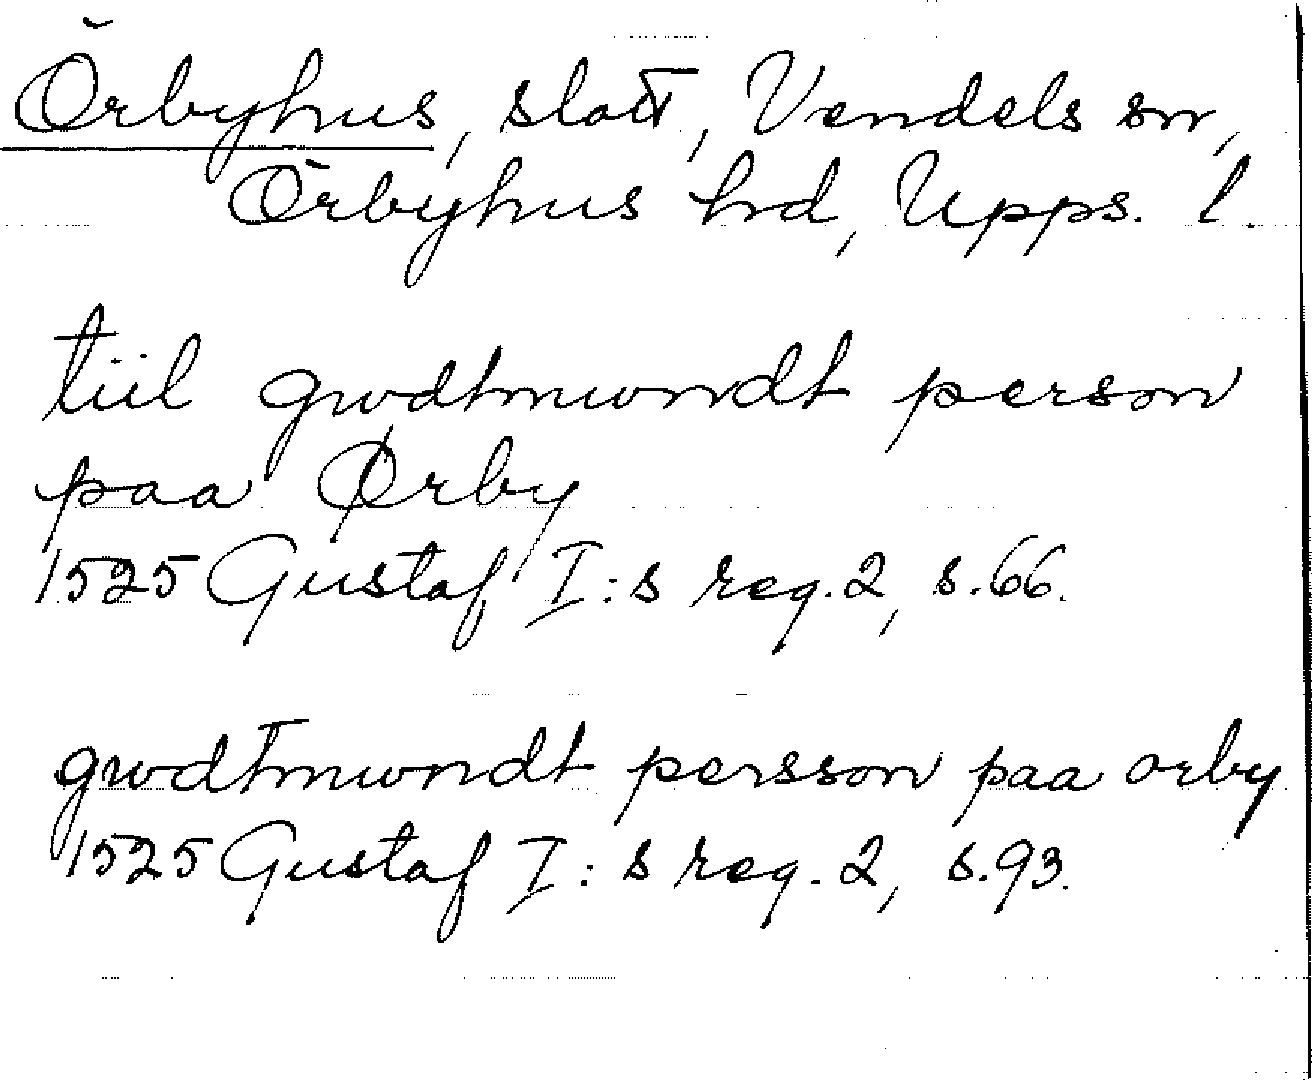 Örbyhus, slott, Vendels sn,
Örbyhus hd, Upps. l.
tiil gwdtmwndt person
paa Ørby
1525 Gustaf I:s reg. 2, s. 66.
gwdtmwndt persson paa orby
1525 Gustaf I:s reg. 2, s. 93.